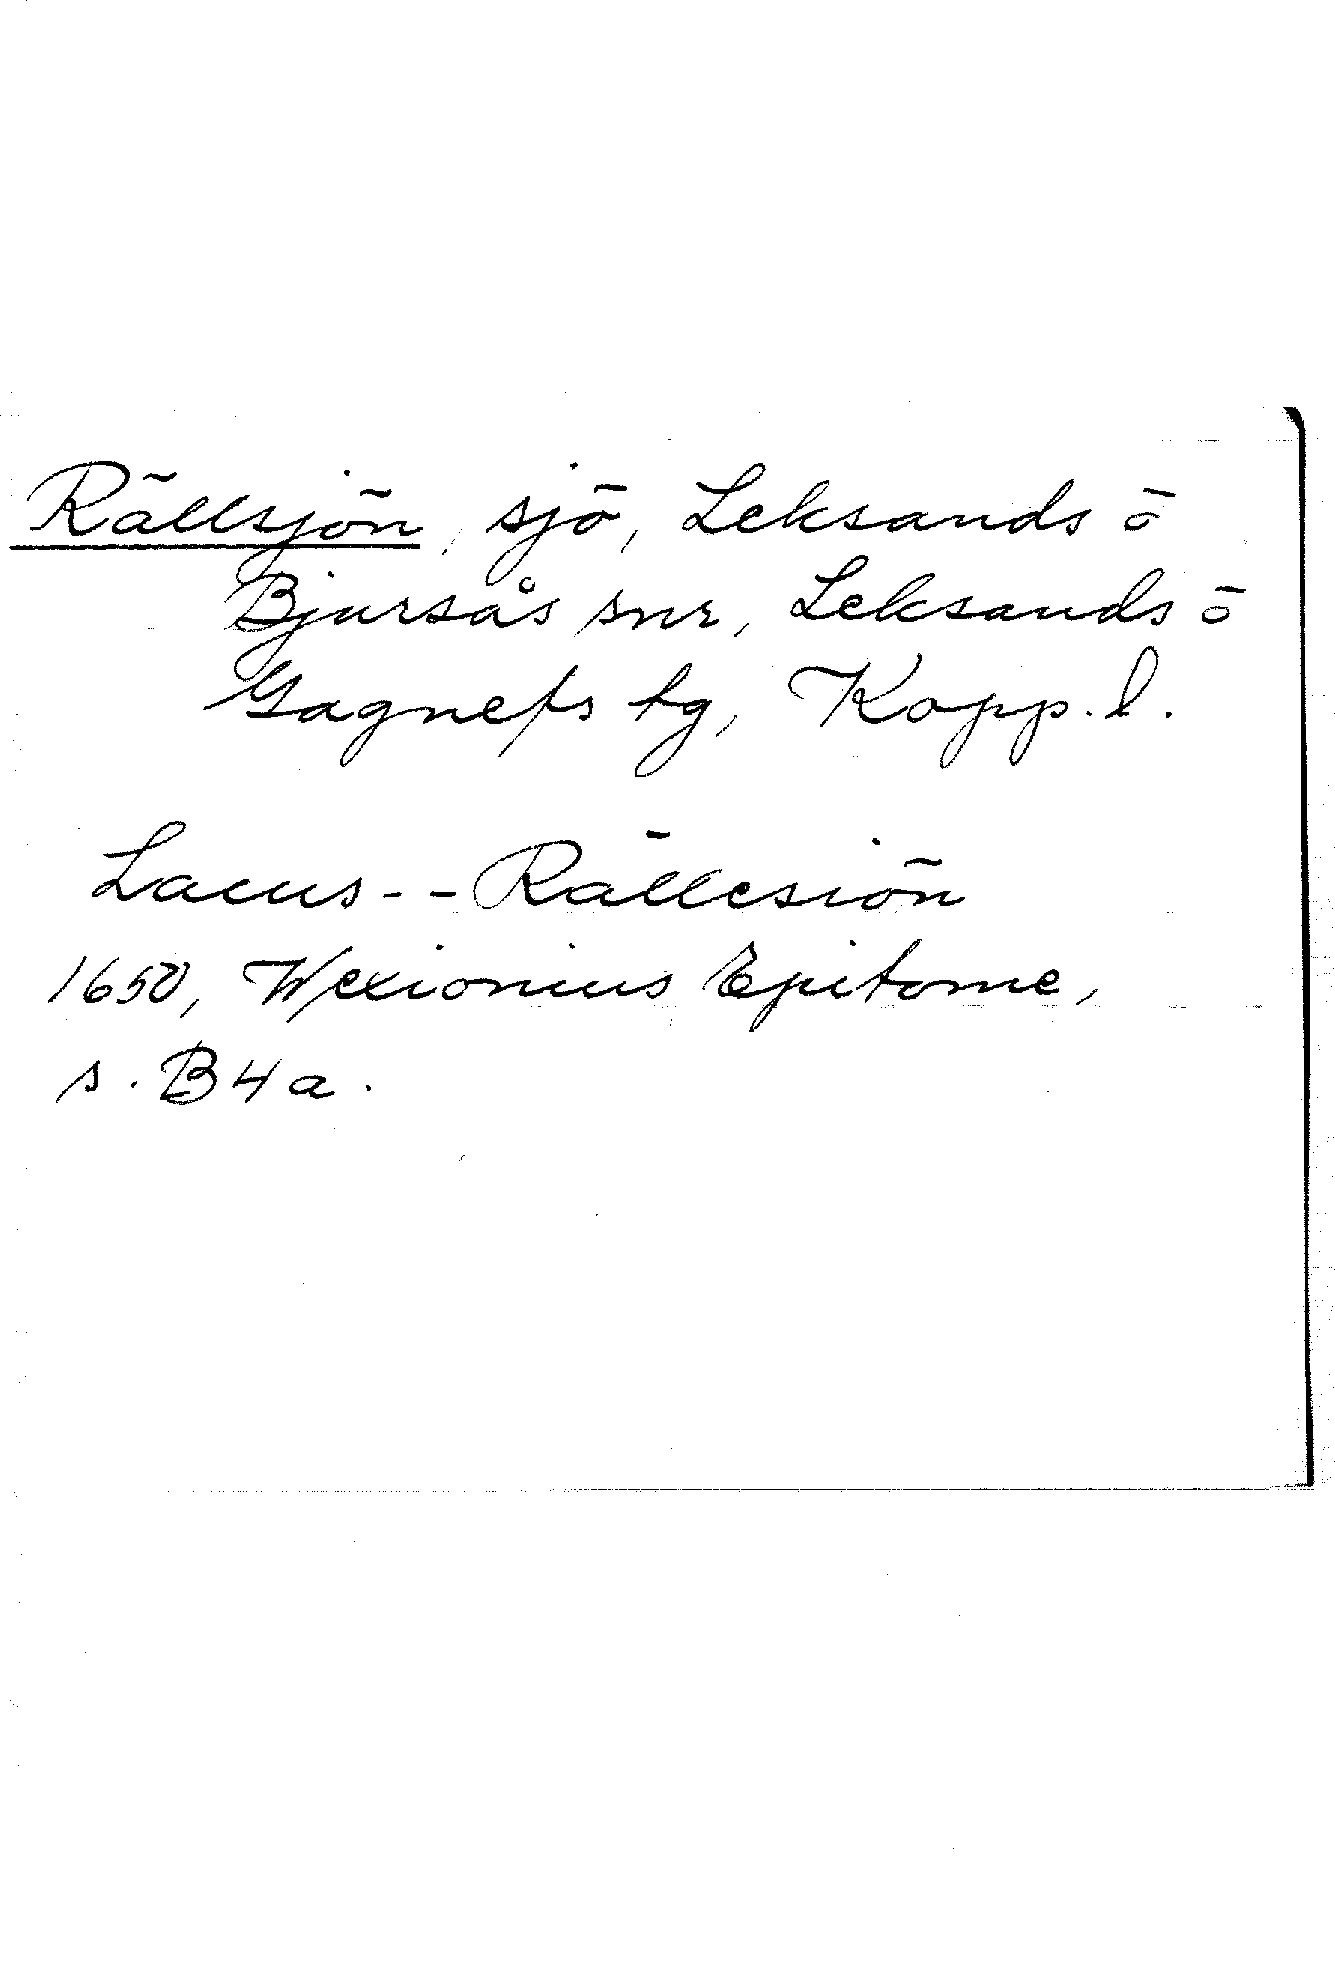 Rällsjön, sjö, Leksands o
Bjursås snr, Leksands o
Gagnefs tg, Kopp. l.
Lacus -- Rällesiön
1650, Wexionius Epitome,
s. B4a.